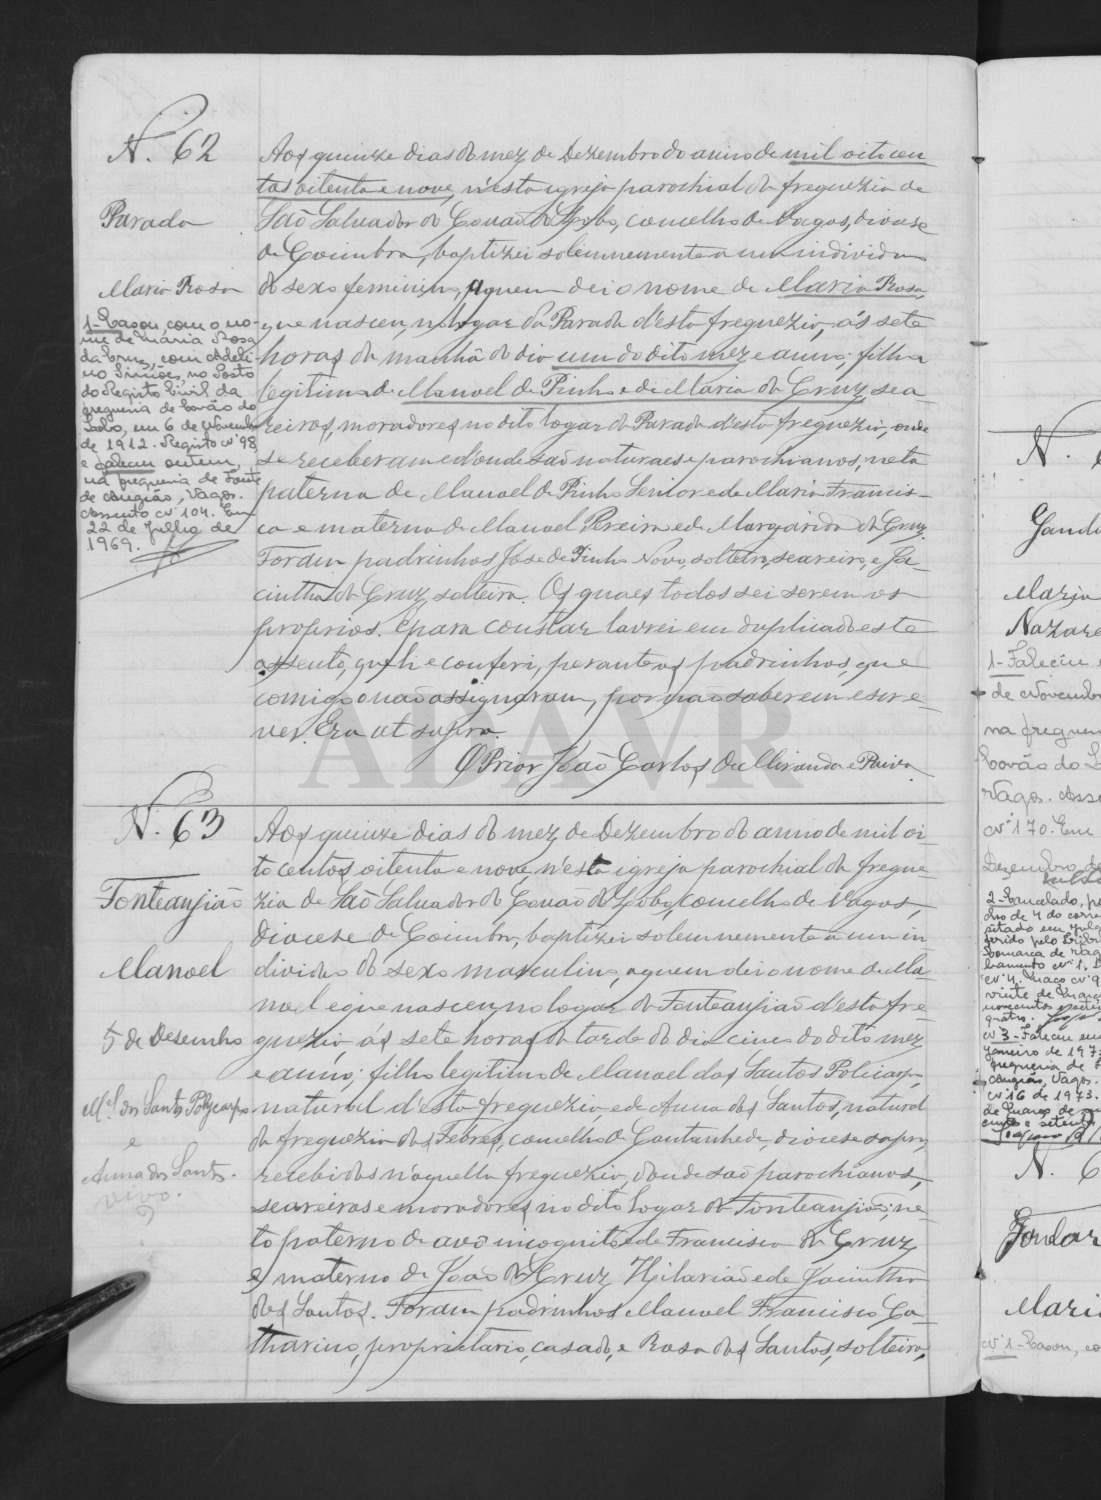 N. 62
Parada
Maria Rosa
1-Casou, com o no-
me de Maria Rosa
da Cruz, com Adeli-
no Simões, no Posto
do Registo Civil da
freguesia de Covão do
Lobo, em 6 de Novembro
de 1912. Registo nº 98
e faleceu ontem,
na freguesia de Fonte
de Angião, Vagos.
Assento nº 104. Em
22 de Julho de
1969.
Aos quinze dias do mez de Dezembro do anno de mil oitocen
tos oitenta e nove, n'esta igreja parochial da freguezia de
São Salvador do Covão do Lobo, concelho de Vagos, diocese
de Coimbra, baptizei solemnemente a um individuo
do sexo feminino, a quem dei o nome de Maria Rosa,
que nasceu, no logar da Parada d'esta freguezia, ás sete
horas da manhã do dia um do dito mez e anno; filha
legitima de Manoel de Pinho e de Maria da Cruz, sea-
reiros, moradores no dito logar da Parada d'esta freguezia, onde
se receberam e d'onde são naturaes e parochianos; neta
paterna de Manoel de Pinho Senior e de Maria Francis-
ca e materna de Manoel Pereira e de Margarida da Cruz.
Foram padrinhos José de Pinho Novo, solteiro, seareiro, e Ja-
cintha da Cruz, solteira. Os quaes todos sei serem os
proprios. E para constar lavrei em duplicado este
assento, que li e conferi, perante os padrinhos, que
comigo não assignaram, por não saberem escre-
ver. Era ut supra.
O Prior João Carlos de Miranda e Paiva
ADAVR
N. 63
Fonteangião
Manoel
5 de Desembro
Mel dos Santos Polycarpo
e
Anna dos Santos.
vivo.
Aos quinze dias do mez de Dezembro do anno de mil oi-
to centos oitenta e nove, n'esta igreja parochial da fregue-
zia de São Salvador do Covão do Lobo, concelho de Vagos,
diocese de Coimbra, baptizei solemnemente a um in-
dividuo do sexo masculino, a quem dei o nome de Ma-
noel e que nasceu no logar da Fonteangião d'esta fre-
guezia, ás sete horas da tarde do dia cinco do dito mez
e anno; filho legitimo de Manoel dos Santos Policarpo,
natural d'esta freguezia, e de Anna dos Santos, natural
da freguezia das Febres, concelho de Cantanhede, diocese supra,
recebidos n'aquella freguezia, donde são parochianos,
seareiros e moradores no dito logar da Fonteangião; ne-
to paterno de avô incognito e de Francisca da Cruz
e materno de João da Cruz Hilarião e de Jacintha
dos Santos. Foram padrinhos Manoel Francisco Ca-
tharino, proprietario, casado, e Rosa dos Santos, solteira,
N.
Maria
Nazare
1-Faleceu
de Novembro
na freguesia
Covão do Lo
Vagos. Asse
nº 170. Em
Dezembro de
2-Cancelado, po
cho de 4 do corre
Comarca de Vag
nº 4. Maço nº 9
vinte de Março
gratis.
nº 3-Faleceu em
Janeiro de 197
freguesia de F
Angião, Vagos.
nº 16 de 1973.
de Março de
N. 6
Maria
nº 1-Casou, co